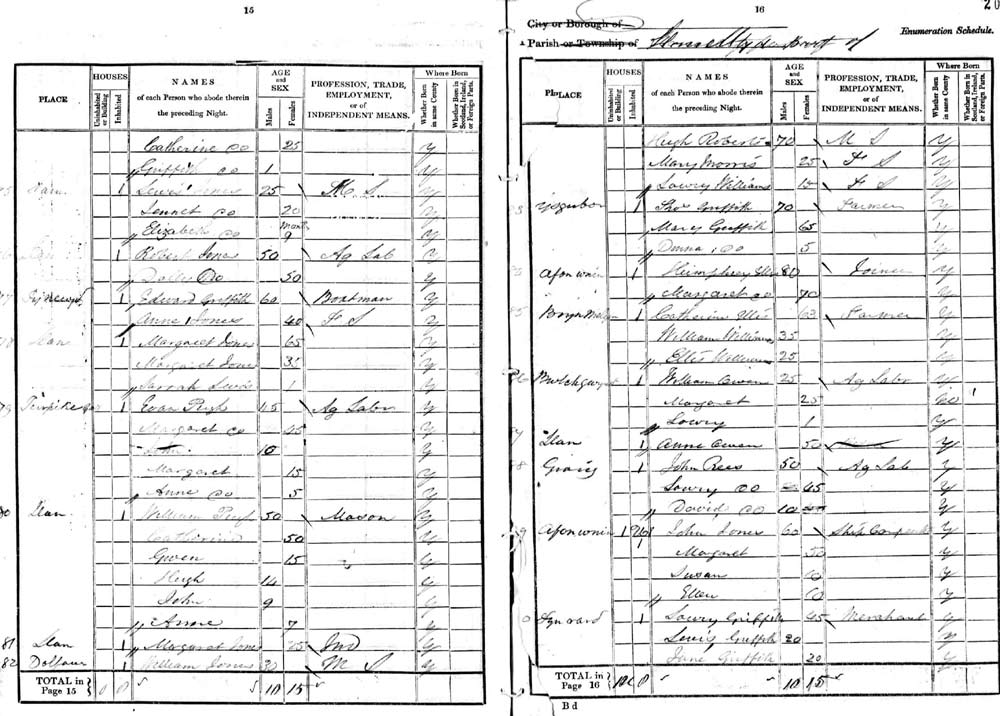 15
PLACE
HOUSES
Uninhabited or Building
Inhabited
NAMES
of each Person who abode therein
the preceding Night.
AGE
and
SEX
Males
Females
PROFESSION, TRADE,
EMPLOYMENT,
or of
INDEPENDENT MEANS.
Where Born
Whether Born in same County
Whether Born in Scotland, Ireland, or Foreign Parts.
Catherine Do 25 y
Griffith Do 1 y
1 Lewis 25 M S y
Jennet Do 20 y
Elizabeth Do Month 9 y
1 Robert Jones 50 Ag Lab y
Do 50 y
1 Edward Griffith 60 Boatman y
Anne Jones 40 F S y
Llan 1 Margaret Jones 65 y
Margaret Jones 35 y
Sarrah Lewis 1 y
79 1 Evan Pugh 45 Ag Labr y
Margaret Do 45 y
John 10 y
Margaret 15 y
Anne Do 5 y
Llan 1 William 50 Mason y
Catherine 50 y
Gwen 15 y
Hugh 14 y
John 9 y
Anne 7 y
81 Llan 1 Margaret Jones 25 Ind y
82 1 William Jones 30 M S y
TOTAL in Page 15 0 0 " " 10 15
16
20
City or Borough of
Parish or Township of
Part of
Enumeration Schedule.
PLACE
HOUSES
Uninhabited or Building
Inhabited
NAMES
of each Person who abode therein
the preceding Night.
AGE
and
SEX
Males
Females
PROFESSION, TRADE,
EMPLOYMENT,
or of
INDEPENDENT MEANS.
Where Born
Whether Born in same County
Whether Born in Scotland, Ireland, or Foreign Parts.
Hugh Roberts 70 M S y
Mary Morris 25 F S y
Lowry Williams 15 F S y
1 Thos Griffith 70 Farmer y
Mary Griffith 65 y
Do 5 y
Afonwnin 1 Humphrey Ellis 80 Joiner y
Margaret Do 70 y
1 Catherine Ellis 63 Farmer y
William Williams 35 y
Ellis Williams 25 y
86 1 William Owen 25 Ag Labr y
Margaret 25
Lowry 1 y
Llan 1 Anne Owen 50 y
1 John Rees 50 Ag Lab y
Lowry Do 45 y
David Do 10 y
Afonwnin 1 John Jones 60 y
Margaret 50 y
Susan 10 y
Ellen 10 y
1 Lowry Griffith 45 Merchant y
Lewis Griffith 20 y
Jane Griffith 20 y
TOTAL in Page 16 " " 10 15
B d